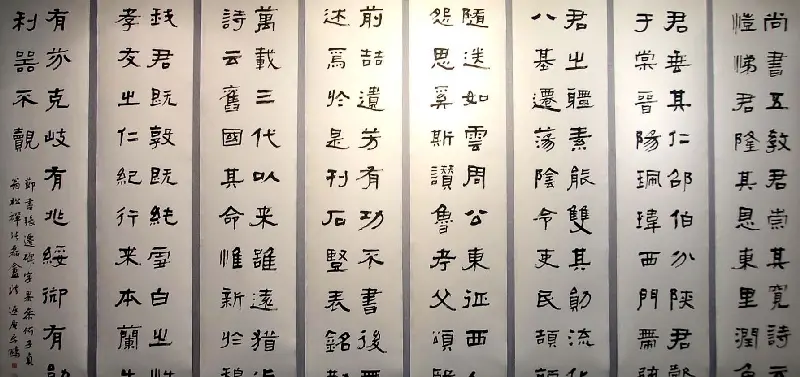 尚書五教君崇其寬詩云
愷悌君隆其恩東里潤色
君垂其仁邵伯分陝君
于棠晉陽珮瑋西門帶
君之體素能雙其勛流化
八基遷蕩陰令吏民頡
隨送如雲周公東征西人
怨思奚斯讚魯考父頌
前喆遺芳有功不書後
述焉於是刊石豎表銘勒
萬載三代以来雖遠猶近
詩云舊國其命惟新於穆
我君既敦既純雪白之性
孝友之仁紀行来本蘭生
有芬克岐有兆綏御有勛
利器不覿
節書張遷碑字 參何子貞
翁松禪